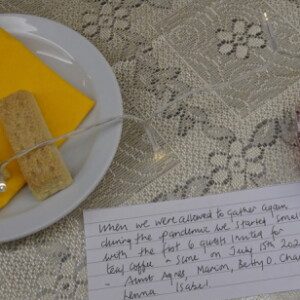 When we were allowed to gather again
during the pandemic we started small
with the first 6 guests invited for
Real Coffee - Scone on July 15th 202
- Aunt Agnes, Marion, Betty O. Cha
Lenna Isabel